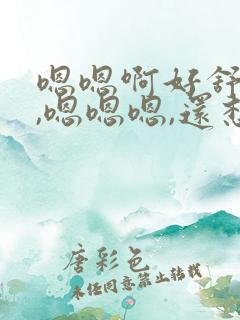 嗯嗯啊好舒
,嗯嗯嗯,還想
唐彩色
未经同意禁止转载